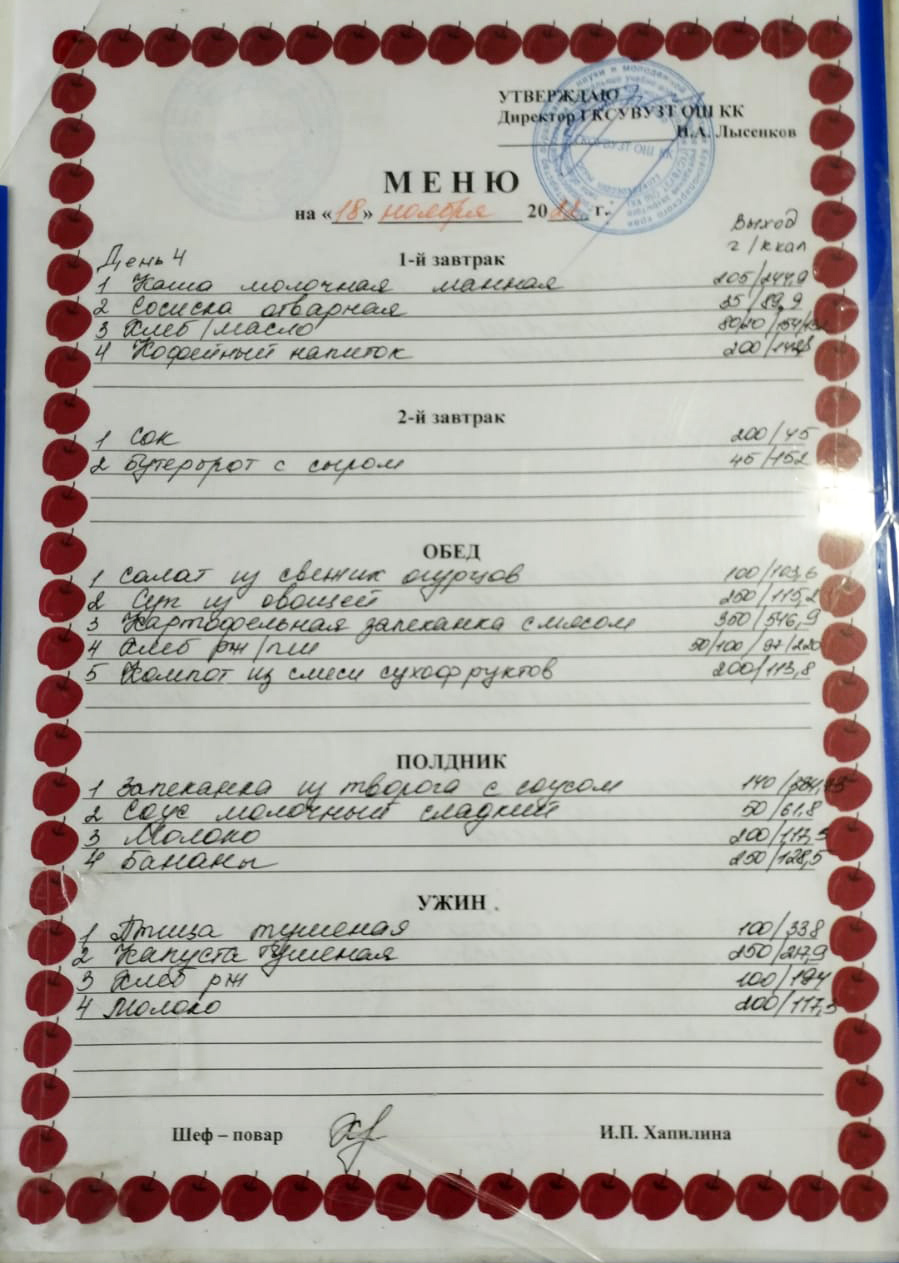 УТВЕРЖДАЮ
Директор ГКСУВУЗТ ОШ КК
Н.А. Лысенков
МЕНЮ
на «18» ноября 20 г.
Выход
г/ккал
День 4
1-й завтрак
1 Каша молочная манная 205/244,9
2 Сосиска отварная 35/89,9
3 Хлеб/масло
4 Кофейный напиток 200/
2-й завтрак
1 Сок 200/45
2 Бутерброт с сыром 45/152
ОБЕД
1 Салат из свежих огурцов 100/103,6
2 Суп из овощей 250/115,2
3 Картофельная запеканка с мясом 350/546,9
4 Хлеб рж/пш 50/100/97/220
5 Компот из смеси сухофруктов 200/113,8
ПОЛДНИК
1 Запеканка из творога с соусом 140/
2 Соус молочный сладкий 50/61,8
3 Молоко 200/117,5
4 Бананы 250/128,5
УЖИН
1 Птица тушеная 100/338
2 Капуста тушеная 250/217,9
3 Хлеб рж 100/194
4 Молоко 200/117,5
Шеф – повар И.П. Хапилина